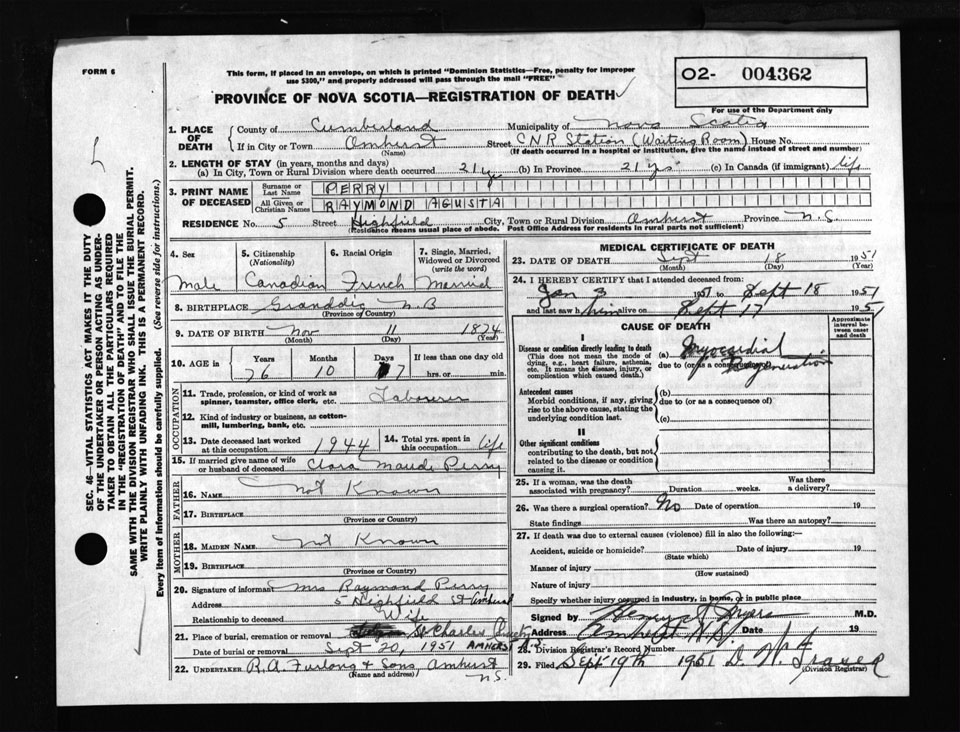 FORM 6
This form, if placed in an envelope, on which is printed "Dominion Statistics—Free, penalty for improper
use $300," and properly addressed will pass through the mail "FREE"
PROVINCE OF NOVA SCOTIA—REGISTRATION OF DEATH
O2- 004362
For use of the Department only
1. PLACE OF DEATH
County of Cumberland Municipality of Nova Scotia
If in City or Town Amherst Street CNR Station (Waiting Room) House No.
(Name) (If death occurred in a hospital or institution, give the name instead of street and number)
2. LENGTH OF STAY (in years, months and days)
(a) In City, Town or Rural Division where death occurred 21 yrs (b) In Province 21 yrs (c) In Canada (if immigrant) life
3. PRINT NAME OF DECEASED
Surname or Last Name PERRY
All Given or Christian Names RAYMOND AGUSTA
RESIDENCE No. 5 Street Highfield City, Town or Rural Division Amherst Province N.S.
(Residence means usual place of abode. Post Office Address for residents in rural parts not sufficient)
4. Sex
Male
5. Citizenship
(Nationality)
Canadian
6. Racial Origin
French
7. Single, Married,
Widowed or Divorced
(write the word)
Married
8. BIRTHPLACE Granddig N.B
(Province or Country)
9. DATE OF BIRTH Nov 11 1874
(Month) (Day) (Year)
10. AGE in
Years Months Days If less than one day old
76 10 7 hrs. or min.
OCCUPATION
11. Trade, profession, or kind of work as
spinner, teamster, office clerk, etc. Laborer
12. Kind of industry or business, as cotton-
mill, lumbering, bank, etc.
13. Date deceased last worked
at this occupation 1944
14. Total yrs. spent in
this occupation life
15. If married give name of wife
or husband of deceased Clara Maude Perry
FATHER
16. Name Not Known
17. Birthplace
(Province or Country)
MOTHER
18. Maiden Name Not Known
19. Birthplace
(Province or Country)
20. Signature of informant Mrs Raymond Perry
Address 5 Highfield St Amherst
Relationship to deceased Wife
21. Place of burial, cremation or removal St Charles
Date of burial or removal Sept 20, 1951 AMHERST N.S
22. UNDERTAKER R.A. Furlong & Sons, Amherst
(Name and address) N.S.
MEDICAL CERTIFICATE OF DEATH
23. DATE OF DEATH Sept 18 1951
(Month) (Day) (Year)
24. I HEREBY CERTIFY that I attended deceased from:
Jan 3 1951 to Sept 18 1951
and last saw him alive on Sept 17 1951
CAUSE OF DEATH
Approximate
interval be-
tween onset
and death
I
Disease or condition directly leading to death
(This does not mean the mode of
dying, e.g., heart failure, asthenia,
etc. It means the disease, injury, or
complication which caused death.)
(a) Myocardial
due to (or as a consequence of) Degeneration
Antecedent causes
Morbid conditions, if any, giving
rise to the above cause, stating the
underlying condition last.
(b)
due to (or as a consequence of)
(c)
II
Other significant conditions
contributing to the death, but not
related to the disease or condition
causing it.
25. If a woman, was the death
associated with pregnancy? Duration weeks. Was there
a delivery?
26. Was there a surgical operation? No Date of operation 19
State findings Was there an autopsy?
27. If death was due to external causes (violence) fill in also the following:—
Accident, suicide or homicide? Date of injury 19
(State which)
Manner of injury
(How sustained)
Nature of injury
Specify whether injury occurred in industry, in home, or in public place
Signed by Henry A Myers M.D.
Address Amherst N.S. Date 19
28. Division Registrar's Record Number
29. Filed Sept 19th 1951 D. W. Frazer
(Division Registrar)
SEC. 46—VITAL STATISTICS ACT MAKES IT THE DUTY
OF THE UNDERTAKER OR PERSON ACTING AS UNDER-
TAKER TO OBTAIN ALL THE PARTICULARS REQUIRED
IN THE "REGISTRATION OF DEATH" AND TO FILE THE
SAME WITH THE DIVISION REGISTRAR WHO SHALL ISSUE THE BURIAL PERMIT.
WRITE PLAINLY WITH UNFADING INK. THIS IS A PERMANENT RECORD.
Every item of Information should be carefully supplied. (See reverse side for instructions.)